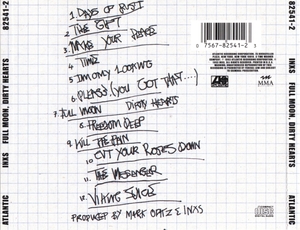 82541-2
FULL MOON, DIRTY HEARTS
INXS
ATLANTIC
1. DAYS OF RUST
2. THE GIFT
3. MAKE YOUR PEACE
4. TIME
5. I'M ONLY LOOKING
6. PLEASE (YOU GOT THAT....)
7. FULL MOON DIRTY HEARTS
8. FREEDOM DEEP
9. KILL THE PAIN
10. CUT YOUR ROSES DOWN
11. THE MESSENGER
12. VIKING JUICE
PRODUCED BY MARK OPITZ & INXS
0 7567-82541-2
MMA
82541-2
FULL MOON, DIRTY HEARTS
INXS
ATLANTIC